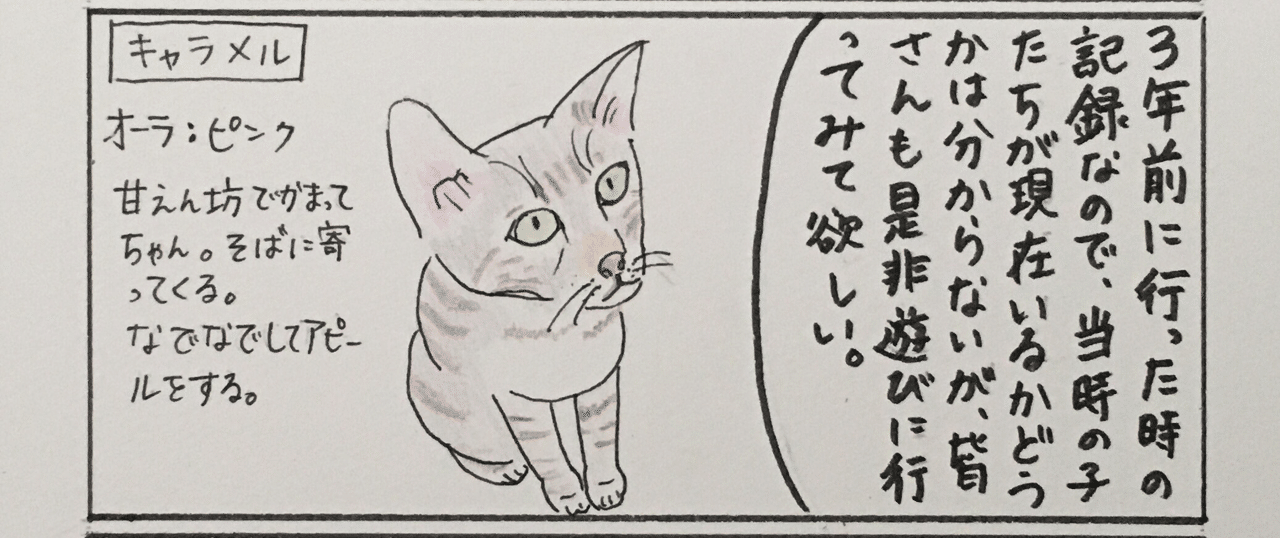 3年前に行った時の
記録なので、当時の子
たちが現在いるかどう
かは分からないが、皆
さんも是非遊びに行
ってみて欲しい。
キャラメル
オーラ:ピンク
甘えん坊でかまって
ちゃん。そばに寄
ってくる。
なでなでしてアピー
ルをする。